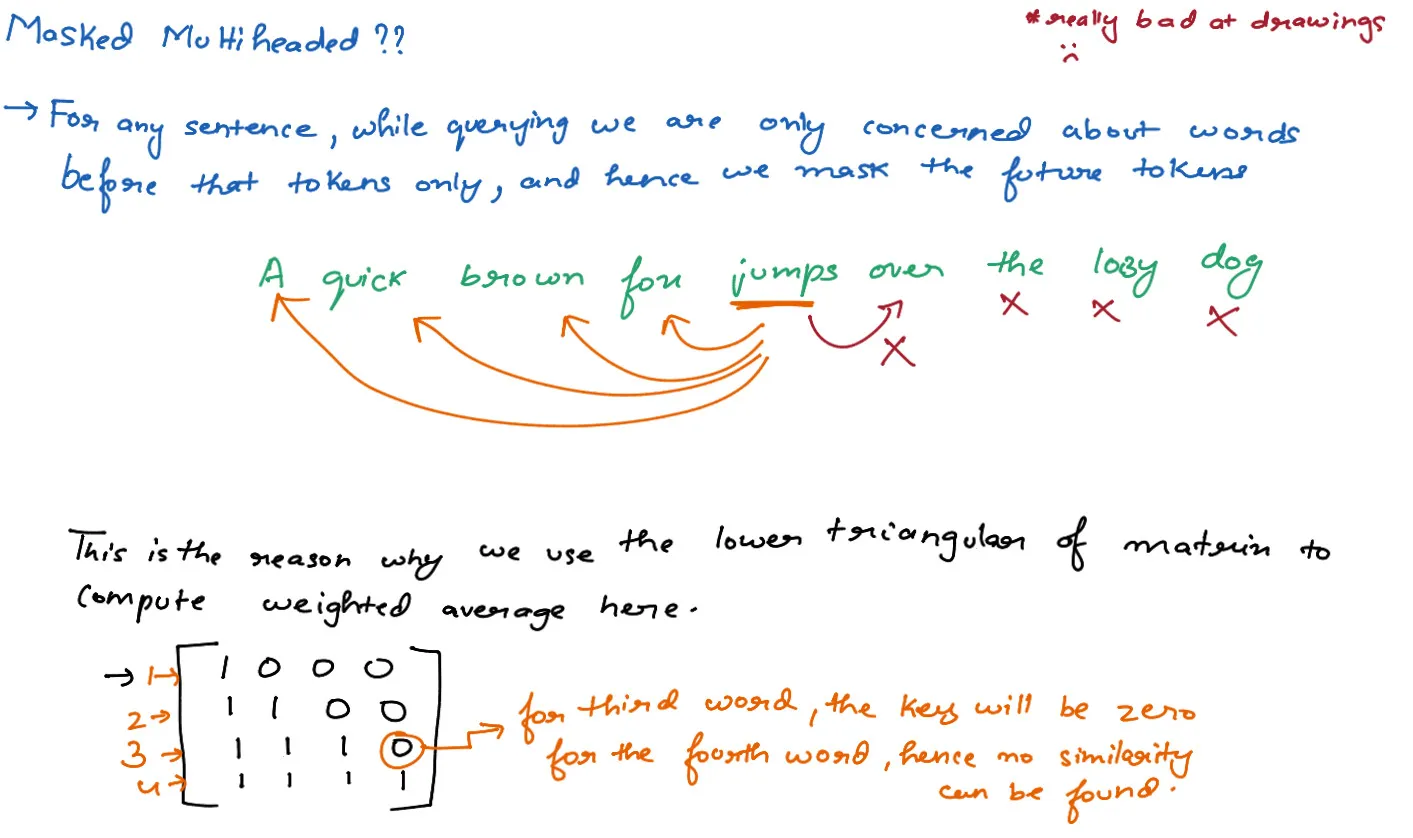 Masked Multiheaded ??
*really bad at drawings
:(
→ For any sentence, while querying we are only concerned about words
before that tokens only, and hence we mask the future tokens
A quick brown fox jumps over the lazy dog
x x x x
This is the reason why we use the lower triangular of matrix to
Compute weighted average here.
→ 1→ 1 0 0 0
2→ 1 1 0 0
3→ 1 1 1 0
4→ 1 1 1 1
for third word, the key will be zero
for the fourth word, hence no similarity
can be found.